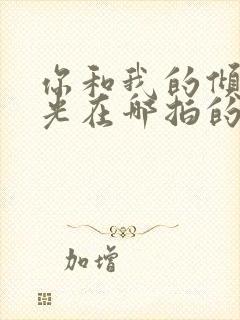 你和我的倾
光在哪拍的
加增